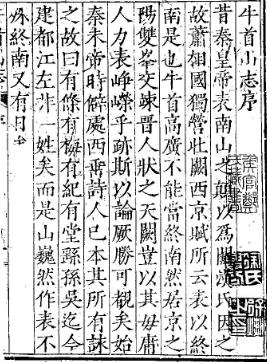 牛首山志序
昔秦皇帝表南山之巔以爲闕漢氏因之
故蕭相國獨營壯闕西京賦所云表以終
南是也牛首高廣不能當終南然居京之
陽雙峯交竦晉人狀之天闕豈以其毋庸
人力表崢嶸乎跡斯以論厥勝可覩矣始
秦未帝時僻處西詩人已本其所有
之故曰有條有梅有紀有堂繇孫吳迄今
建都江左非一姓矣而是山巍然作表不
終南又有日